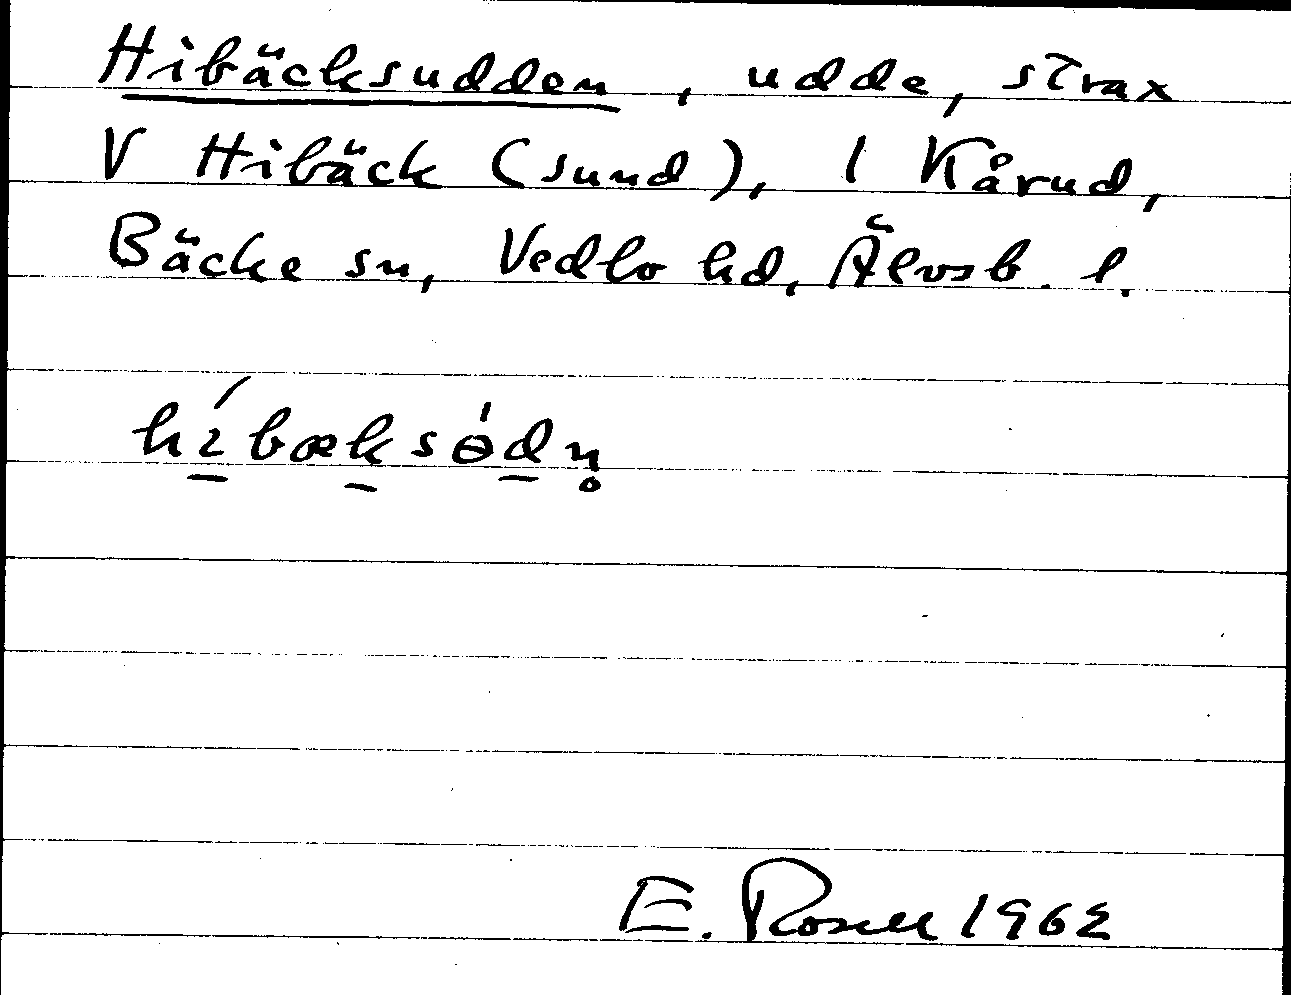 Hibäcksudden, udde, strax
V Hibäck (sund), 1 Kårud,
Bäcke sn, Vedbo hd, Älvsb. l.
híbæksɵ́dn̥
E. Rosell 1962